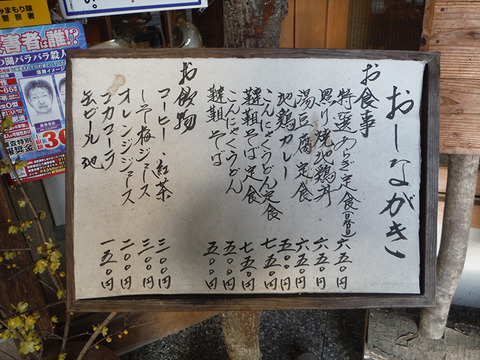 おしながき
お食事
特選あらぎ定食(日替り) 六五〇円
黒り焼地鶏丼 六五〇円
湯豆腐定食 六五〇円
地鶏カレー 五〇〇円
こんにゃくうどん定食 七五〇円
韃靼そば定食 七五〇円
こんにゃくうどん 五五〇円
韃靼そば 五五〇円
お飲物
コーヒー・紅茶 三〇〇円
しそ梅ジュース 三〇〇円
オレンジジュース 二〇〇円
コカコーラ 一五〇円
缶ビール 他
みまもり隊
警察署
者は誰!?
バラバラ殺人